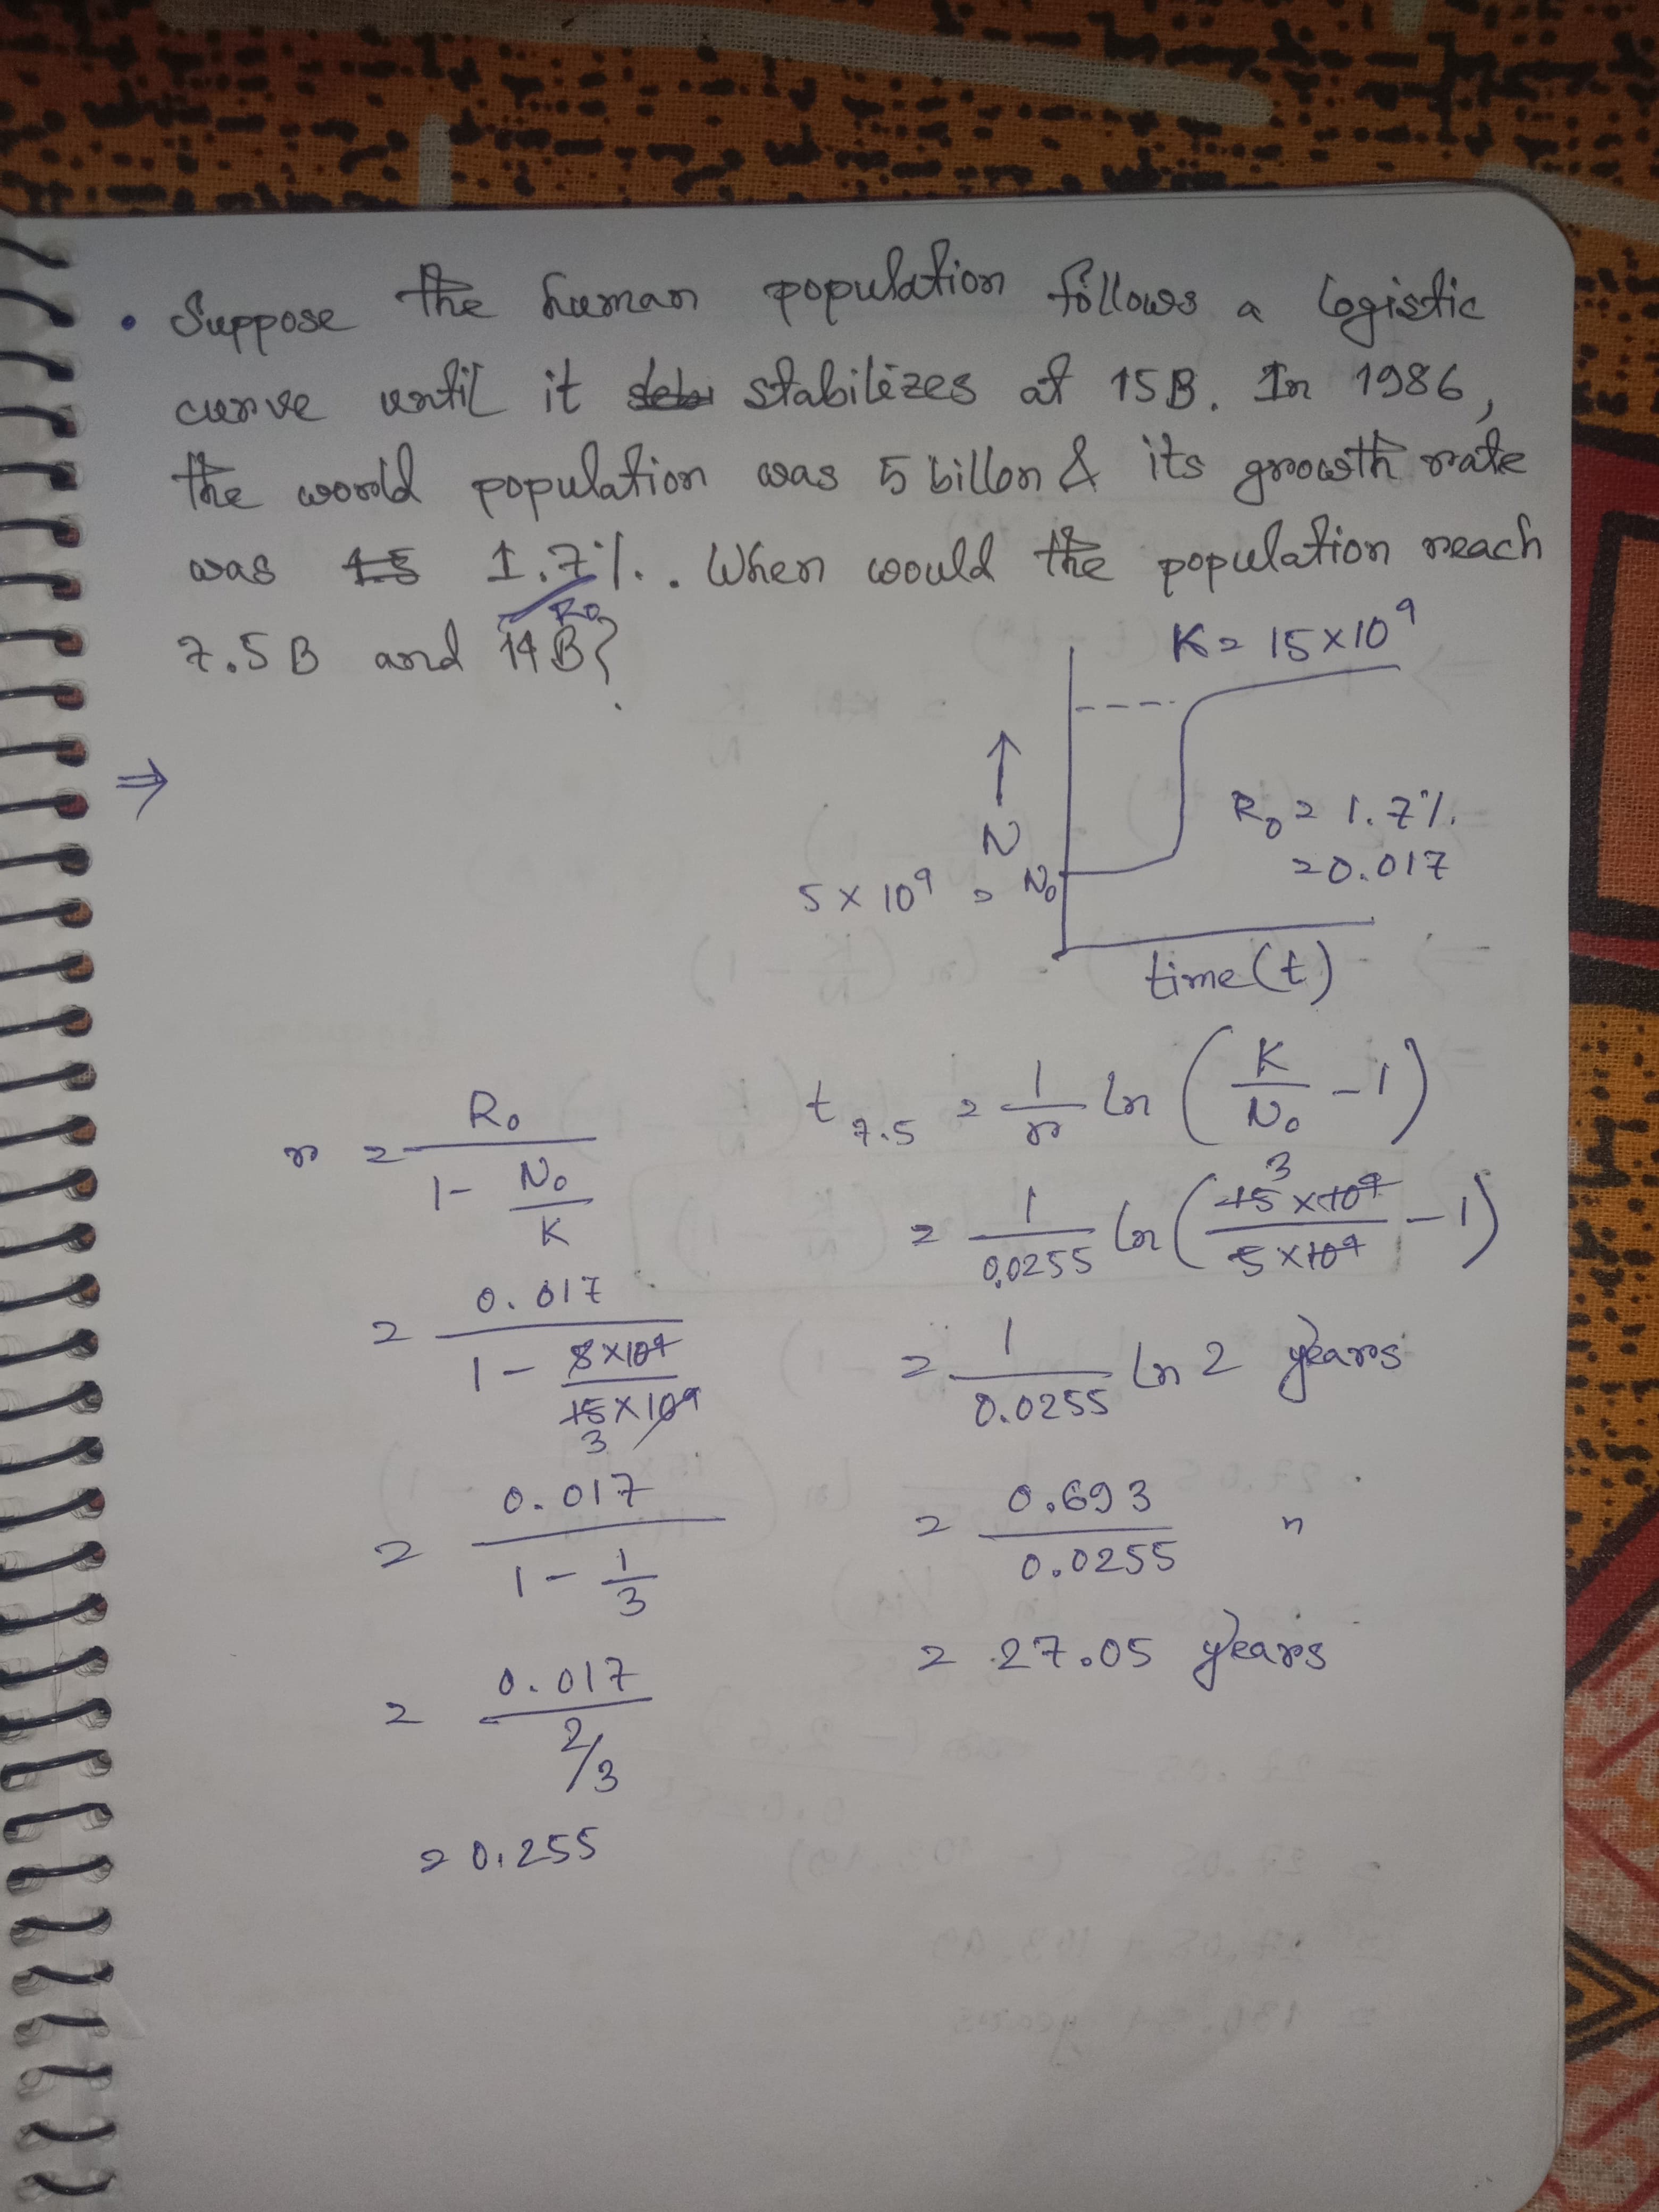 • Suppose the human population follows a logistic
curve until it stabilizes at 15B. In 1986,
the world population was 5 billon & its growth rate
was 1.5 1.7%. When would the population reach
R₀
7.5B and 14B?
K = 15×10⁹
⇒
↑
N
R₀ = 1.7%
= 0.017
5 × 10⁹ = N₀
time (t)
r = R₀ / (1 - N₀/K)
= 0.017 / (1 - 5×10⁹/15×10⁹)
3
= 0.017 / (1 - 1/3)
= 0.017 / (2/3)
= 0.255
t₇.₅ = 1/r ln (K/N₀ - 1)
= 1/0.0255 ln (15×10⁹/5×10⁹ - 1)
3
= 1/0.0255 ln 2 years
= 0.693/0.0255 "
= 27.05 years